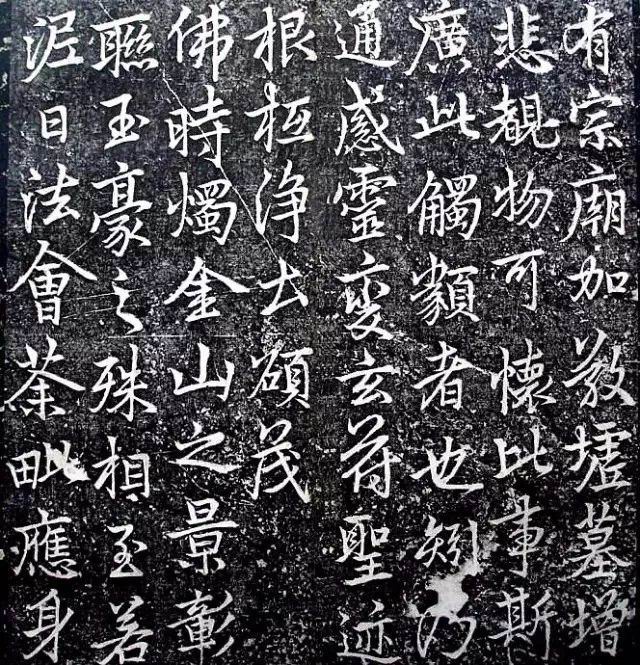 有宗廟加敬墟墓增
悲覩物可懷比事斯
廣此觸類者也矧乃
通感靈變玄苻聖迹
根柢淨土碩茂
佛時燭金山之景彰
聯玉豪之殊相至若
泥日法會荼毗應身